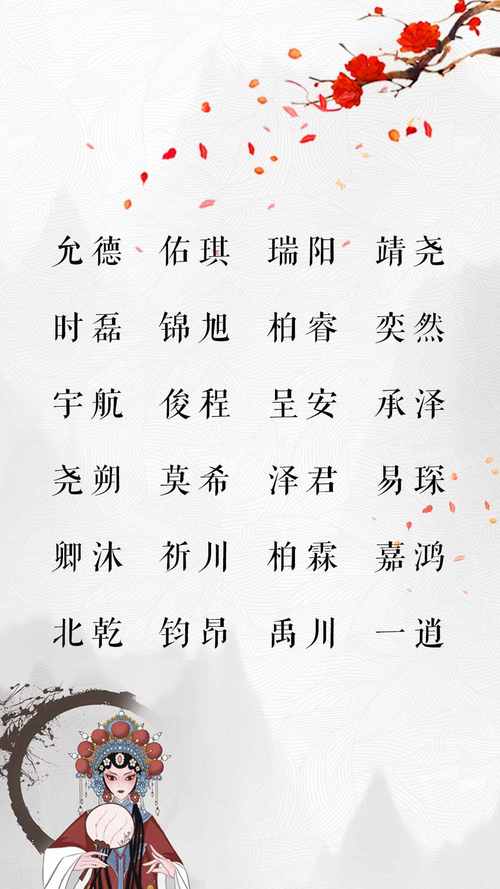 允德 佑琪 瑞阳 靖尧
时磊 锦旭 柏睿 奕然
宇航 俊程 呈安 承泽
尧朔 莫希 泽君 易琛
卿沐 祈川 柏霖 嘉鸿
北乾 钧昂 禹川 一逍